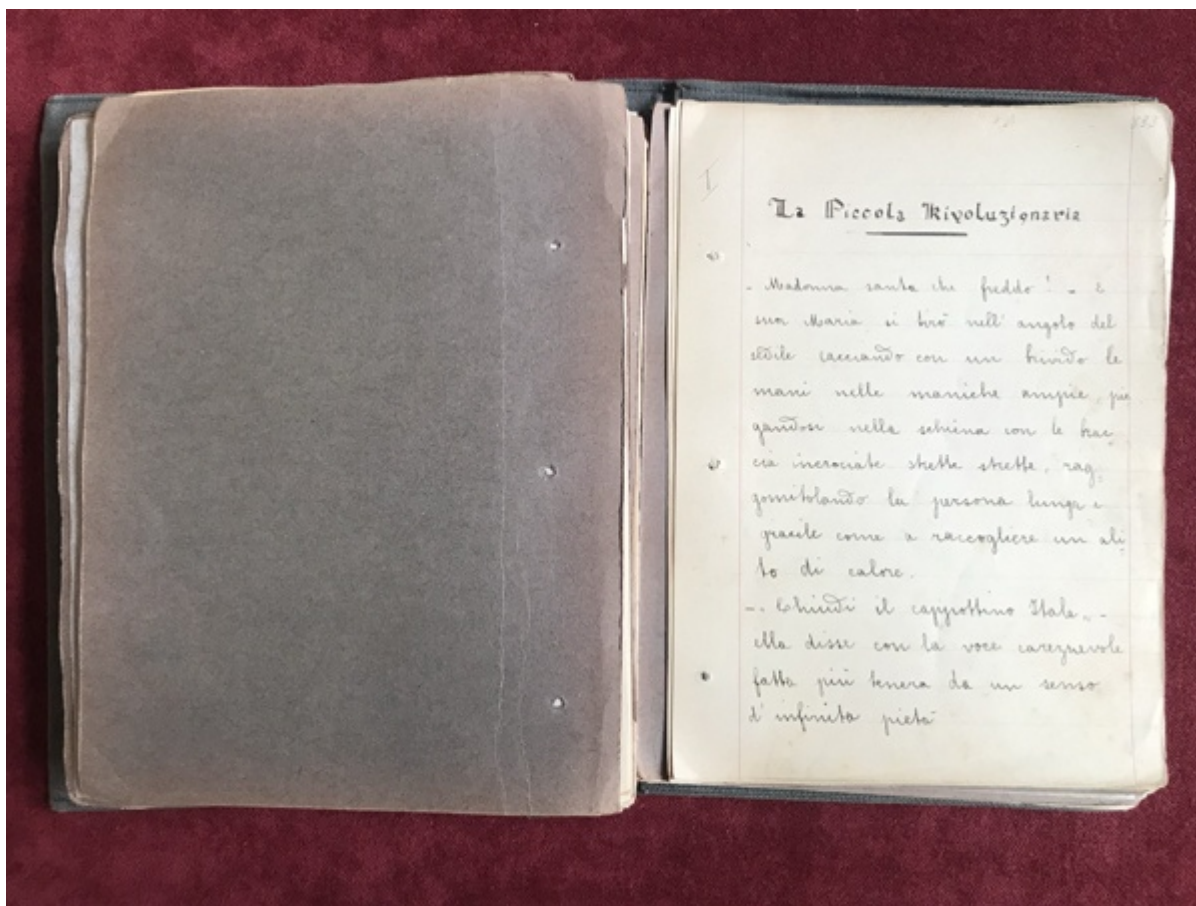 I
La Piccola Rivoluzionaria
- Madonna santa che freddo! - E
suor Maria si tirò nell'angolo del
sedile cacciando con un brivido le
mani nelle maniche ampie, pie
gandosi nella schiena con le brac-
cia incrociate strette strette, rag-
gomitolando la persona lunga e
gracile come a raccogliere un ali
to di calore.
-. Chiudi il cappottino Itala, -
ella disse con la voce carezzevole
fatta più tenera da un senso
d'infinita pietà